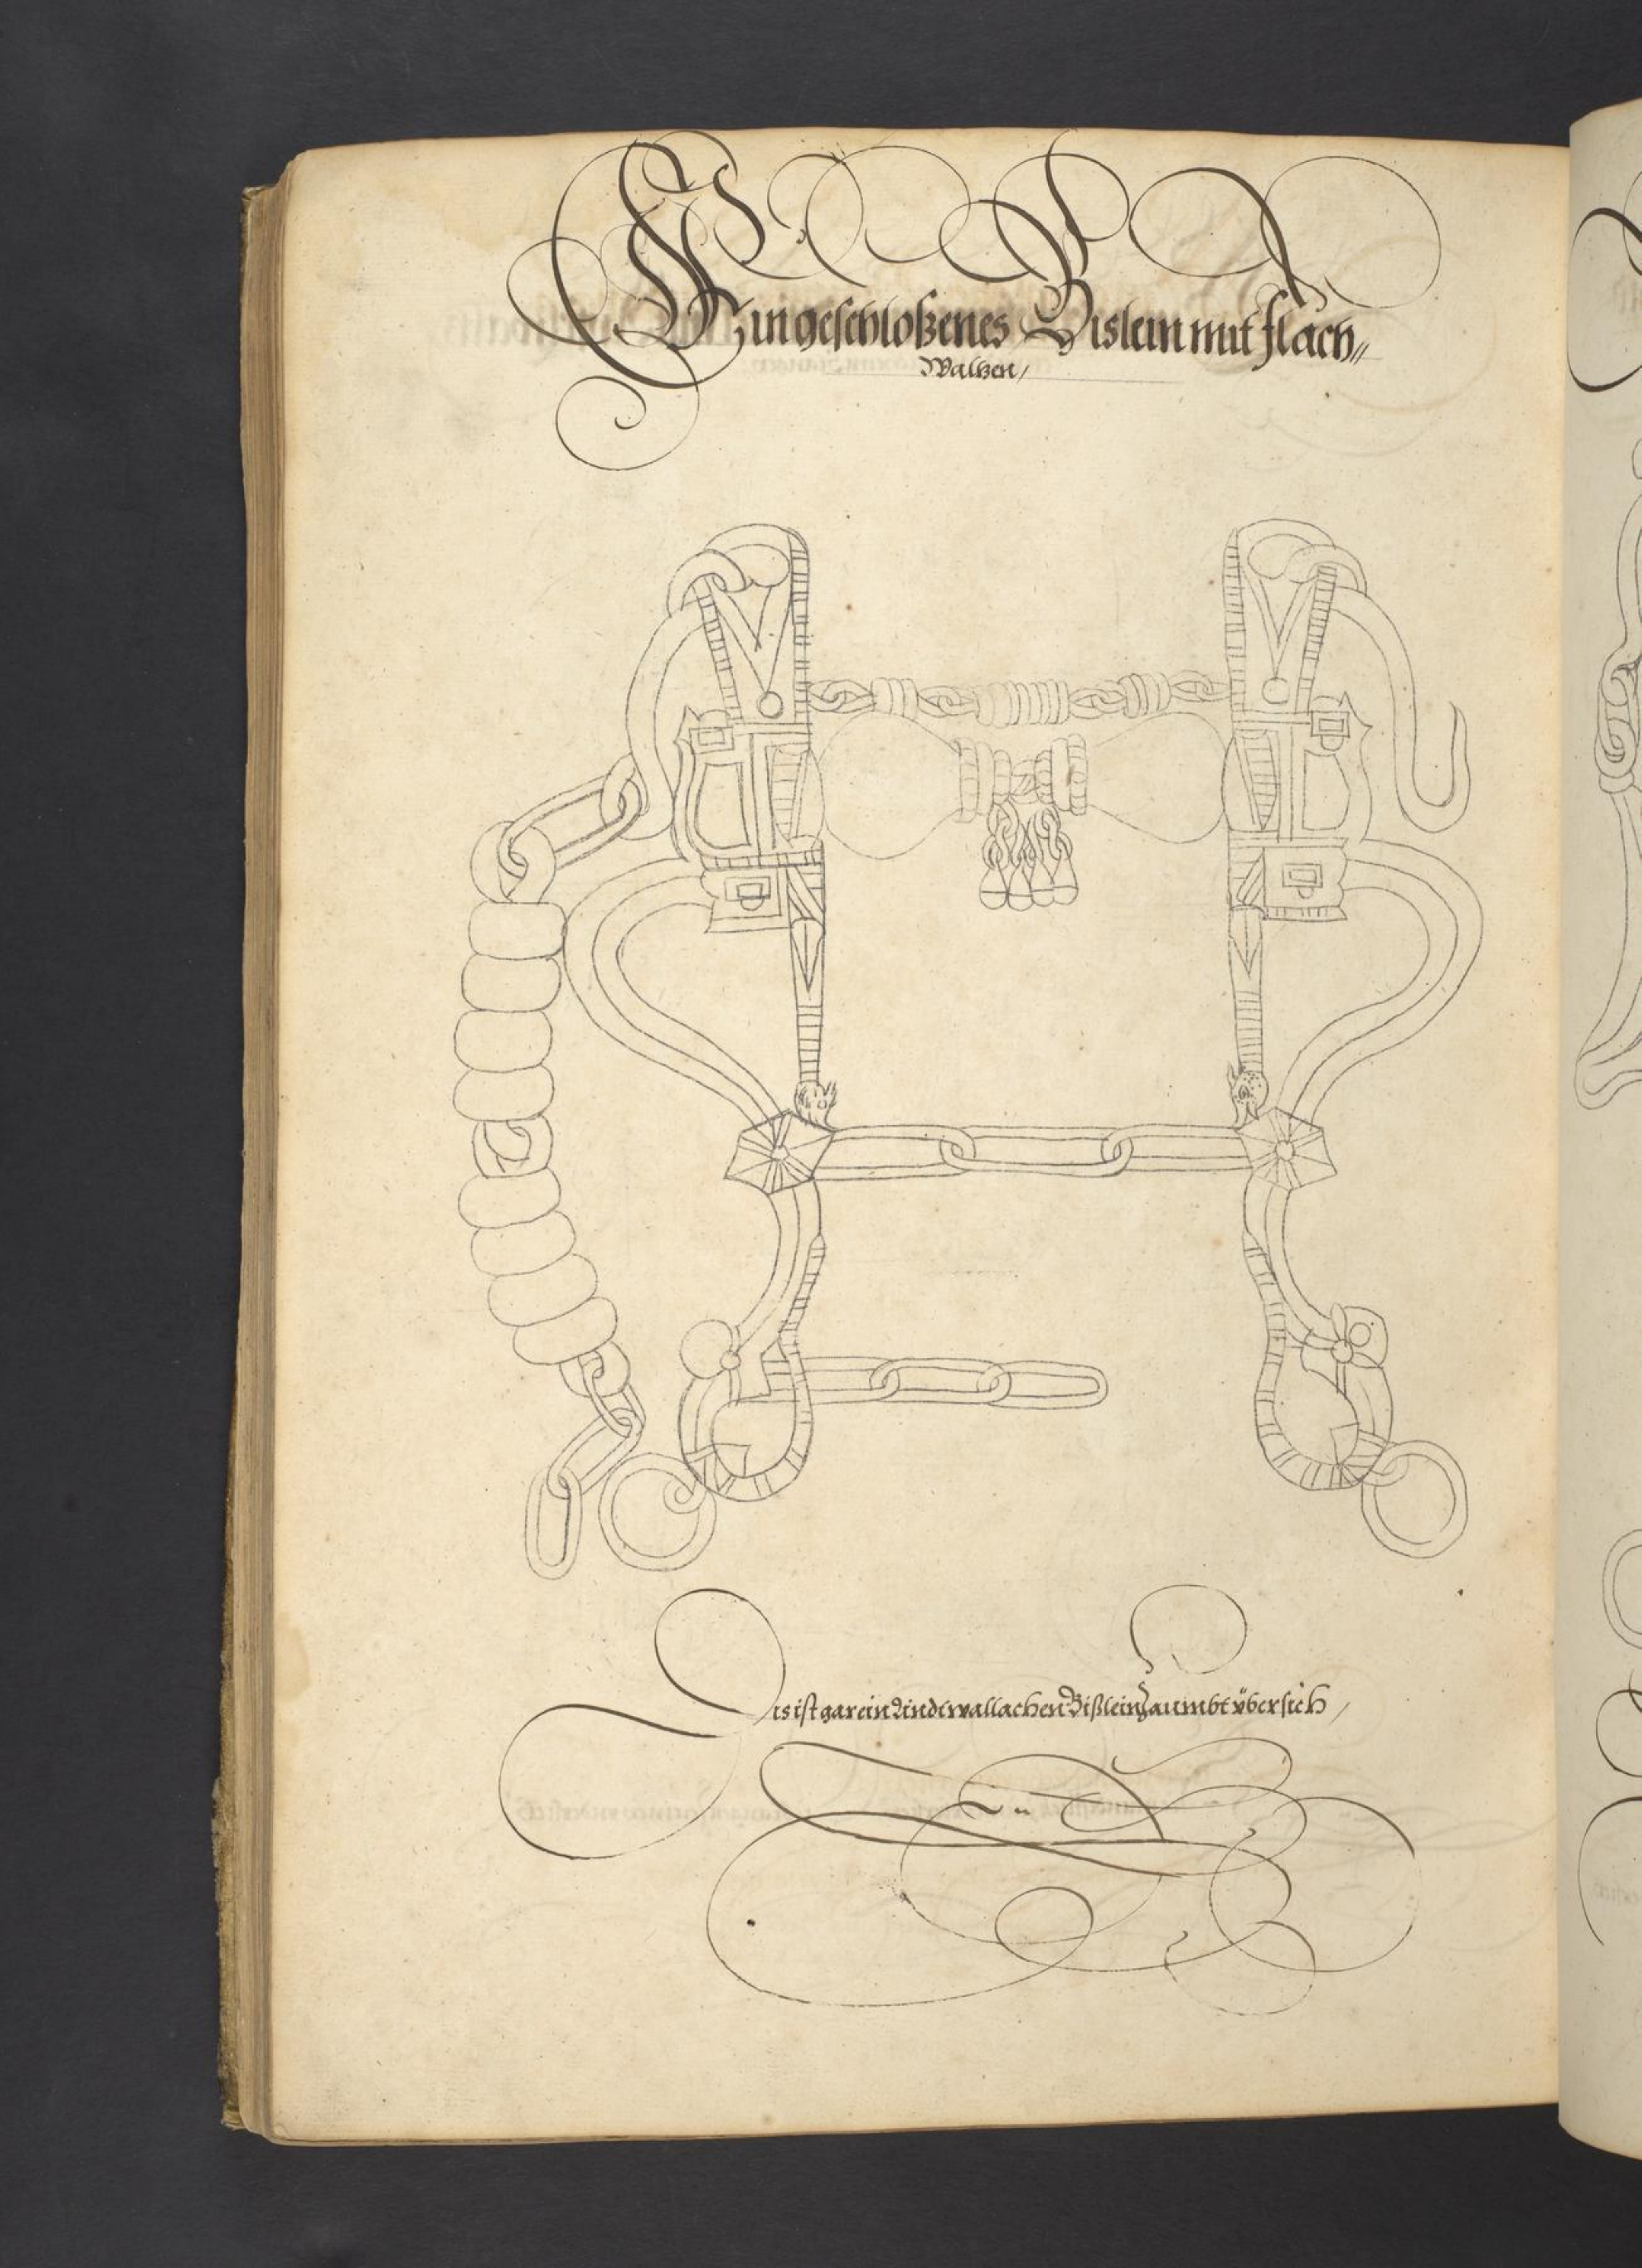 Ein geschloßenes Bislein mit flach„
Waltzen /
Dis ist gar ein Lindt wallachen Bißlein Zaumbt übersich /